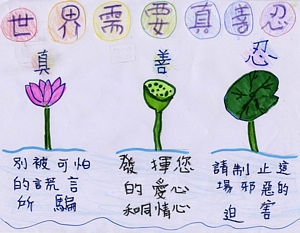 世界需要真善忍
真
善
忍
別被可怕
的謊言
所騙
發揮您
的愛心
和同情心
請制止這
場邪惡的
迫害